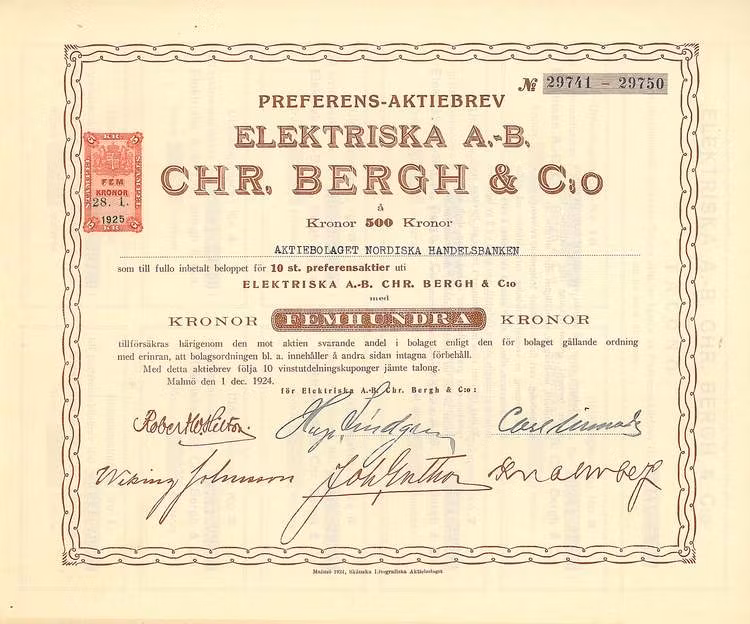 № 29741 – 29750
PREFERENS-AKTIEBREV
ELEKTRISKA A.-B.
CHR. BERGH & C:o
KR.
FEM
KRONOR
28. 1.
1925
KR.
à
Kronor 500 Kronor
AKTIEBOLAGET NORDISKA HANDELSBANKEN
som till fullo inbetalt beloppet för 10 st. preferensaktier uti
ELEKTRISKA A.-B. CHR. BERGH & C:o
med
KRONOR FEMHUNDRA KRONOR
tillförsäkras härigenom den mot aktien svarande andel i bolaget enligt den för bolaget gällande ordning
med erinran, att bolagsordningen bl. a. innehåller å andra sidan intagna förbehåll.
Med detta aktiebrev följa 10 vinstutdelningskuponger jämte talong.
Malmö den 1 dec. 1924.
för Elektriska A.-B. Chr. Bergh & C:o:
Hugo Lindgren
Wiking Johnsson
Malmö 1924, Skånska Litografiska Aktiebolaget